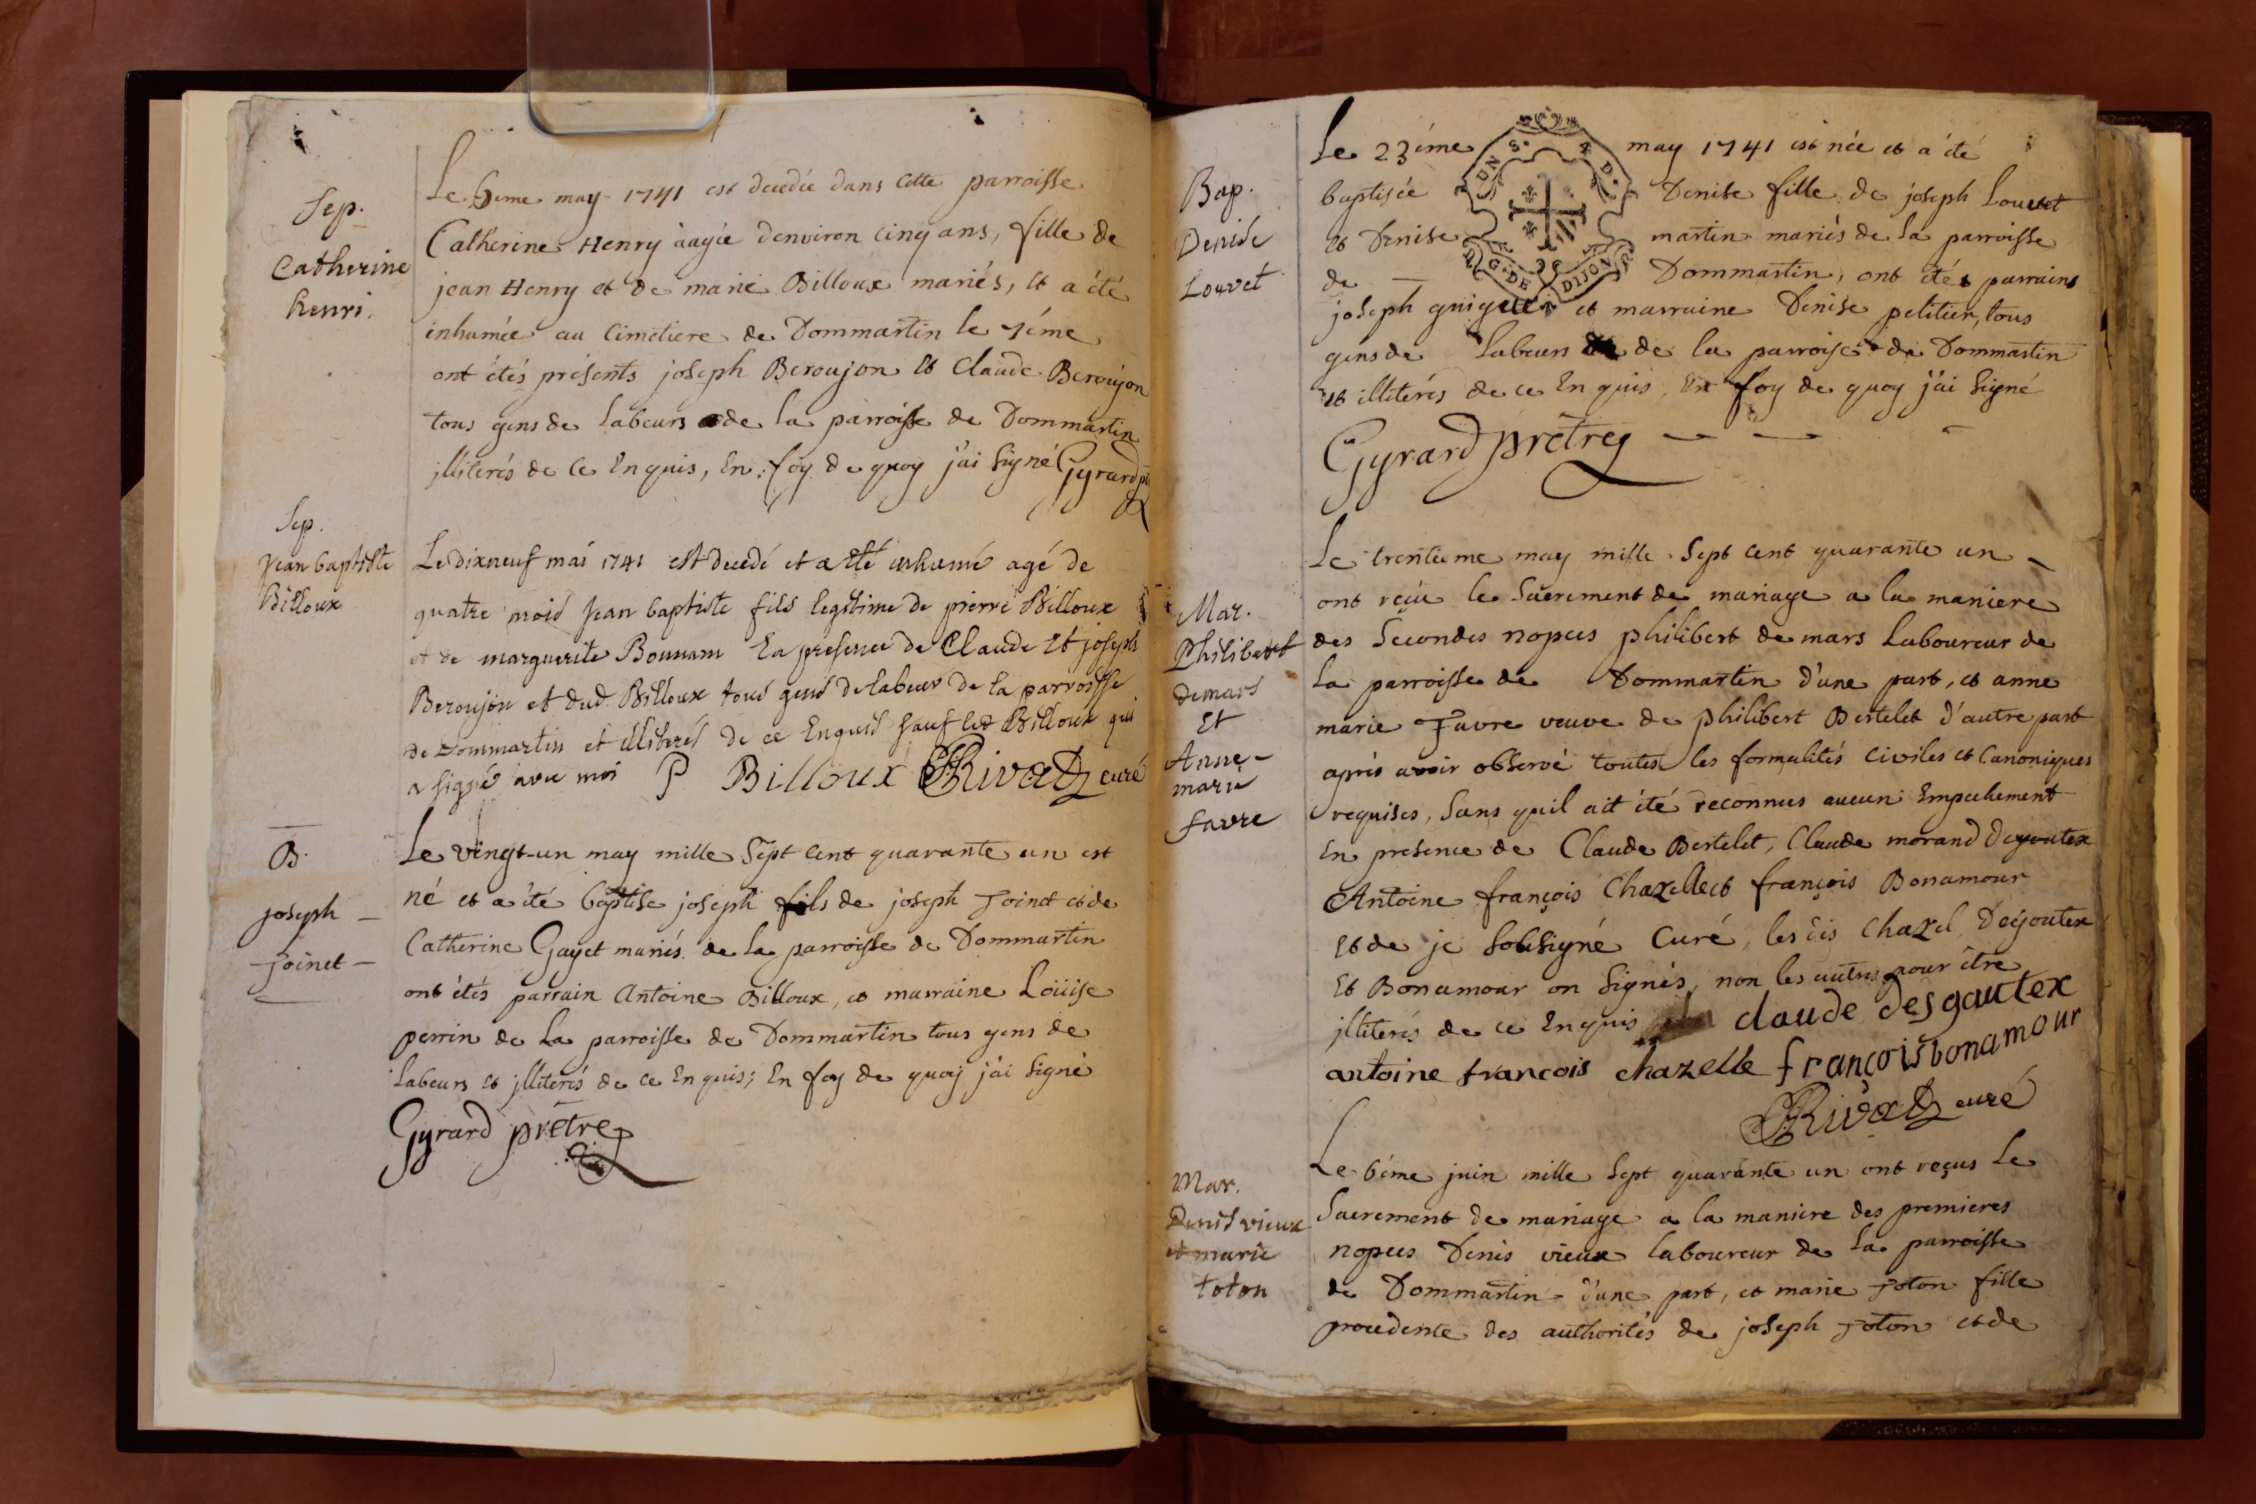 Sep.
Catherine
henri.
Le 6eme may 1741 est decedée dans Cette parroisse
Catherine Henry aagée d'environ cinq ans, fille de
jean Henry et de marie Billoux mariés, et a été
inhumée au Cimetiere de Dommartin le 7éme
ont étés présents joseph Beroujon et Claude Beroujon
tous gens de labeurs de la parroisse de Dommartin
jlliterés de Ce Enquis, En foy de quoy j'ai signé Gyrard
Sep.
Jean baptiste
Billoux
Le dixneuf mai 1741 est decedé et a été inhumé agé de
quatre mois Jean baptiste fils legitime de pierre Billoux
et de marguerite Bonnam En presence de Claude et joseph
Beroujon et dud. Billoux tous gens de labeur de la parroisse
de Dommartin et illiterés de ce Enquis sauf led Billoux qui
a signé avec moi P Billoux Rivat curé
B.
joseph
joinet
Le vingt-un may mille Sept Cent quarante un est
né et a été baptise joseph fils de joseph joinet et de
Catherine Gayet mariés de la parroisse de Dommartin
ont étés parrain Antoine Billoux, et marraine Loüise
perrin de La parroisse de Dommartin tous gens de
labeurs et jlliterés de ce Enquis; En foy de quoy j'ai signé
Gyrard prêtre
Bap.
Denise
Louvet
DIJON
Le 23éme may 1741 est née et a été
baptisée Denise fille de joseph Louvet
et Denise martin mariés de la parroisse
de Dommartin, ont étés parrains
joseph guigue et marraine Denise petitier, tous
gens de labeurs de la parroise de Dommartin
et illiterés de ce Enquis, En foy de quoy j'ai signé
Gyrard prêtre
Mar.
Philibert
demars
Et
Anne-
marie
favre
Le trentieme may mille Sept Cent quarante un
ont reçu le Sacrement de mariage a la maniere
des Secondes nopces philibert de mars Laboureur de
la parroisse de Dommartin d'une part, et anne
marie Favre veuve de philibert Bertelet d'autre part
après avoir observé toutes les formalités Civiles et Canoniques
requises, Sans quil ait été reconnus aucun Empechement
En presence de Claude Bertelet, Claude morand Degoutex
Antoine françois Chazelle et françois Bonamour
et de je Soussigné Curé, les dis Chazel, Degoutex
Et Bonamour on Signés, non les autres pour être
jlliterés de ce Enquis claude desgautex
antoine francois chazelle francois bonamour
Rivat curé
Mar.
Denis vieux
et marie
toton
Le 6éme juin mille Sept quarante un ont reçus Le
Sacrement de mariage a la maniere des premieres
nopces Denis vieux laboureur de la parroisse
de Dommartin d'une part, et marie Toton fille
procedente des authorités de joseph Toton et de